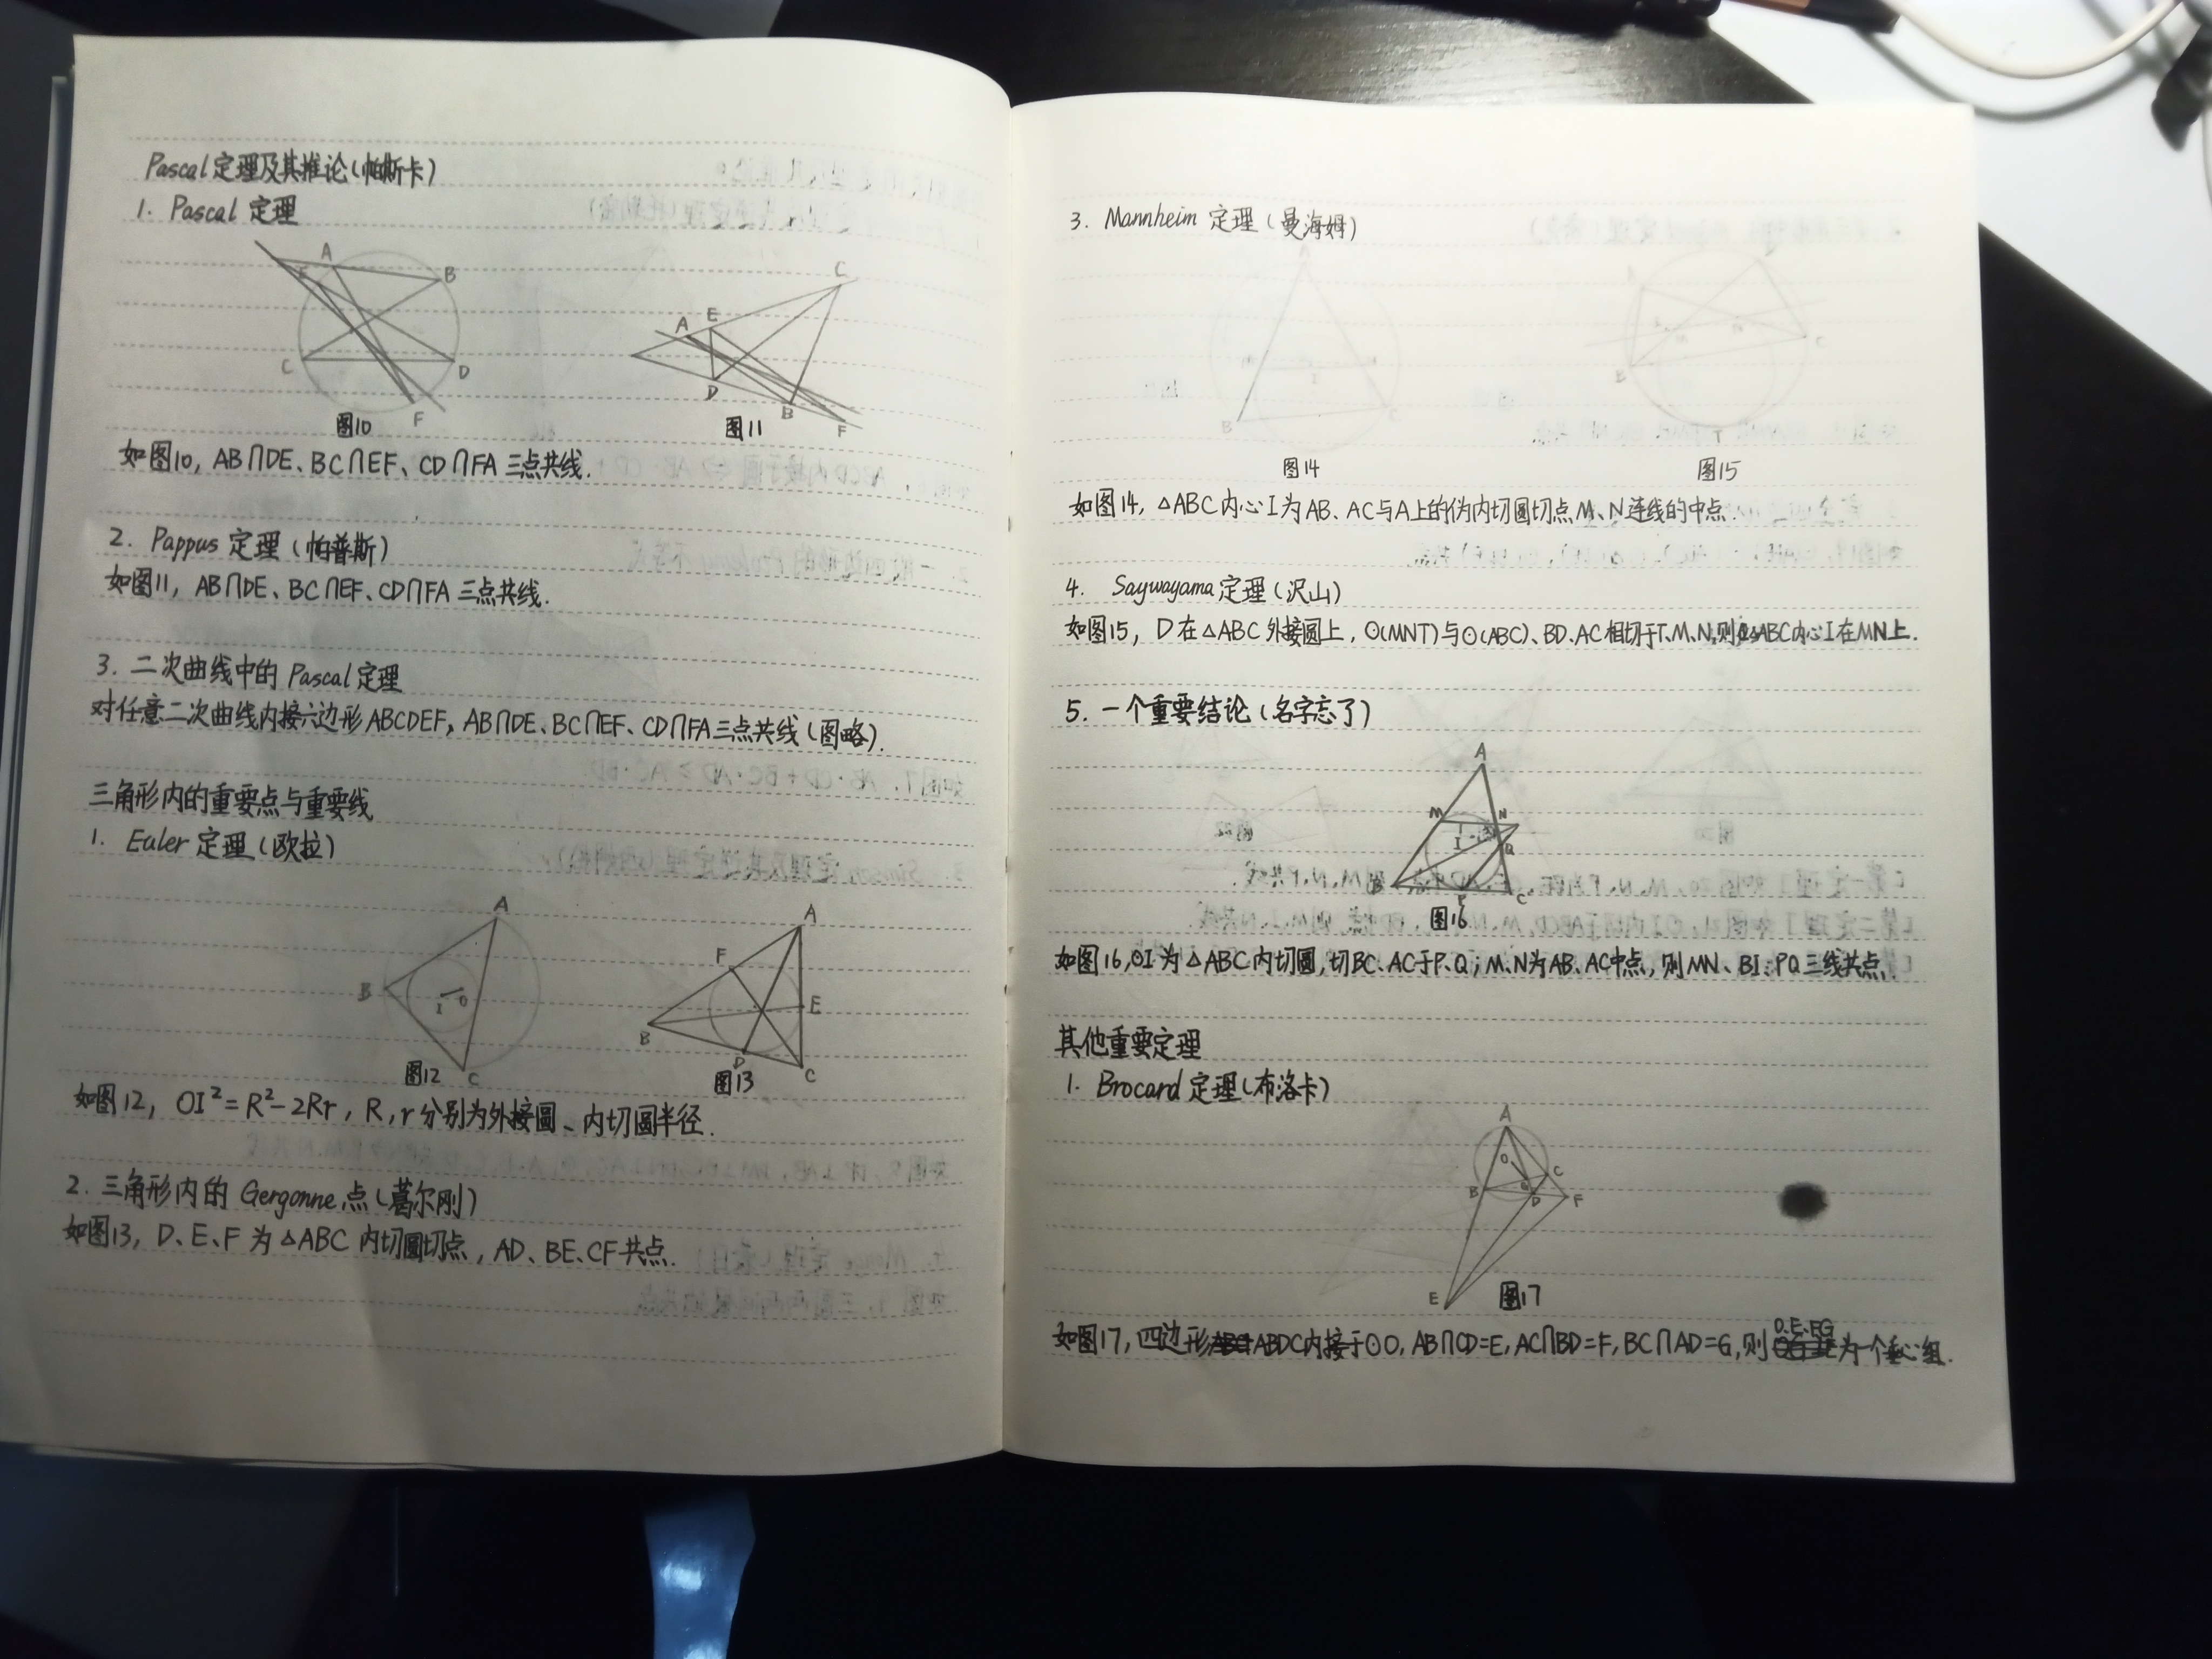 Pascal定理及其推论(帕斯卡)
1. Pascal 定理
A
B
E
C
D
F
图10
C
E
A
D
B
F
图11
如图10, AB∩DE、BC∩EF、CD∩FA 三点共线.
2. Pappus 定理(帕普斯)
如图11, AB∩DE、BC∩EF、CD∩FA 三点共线.
3. 二次曲线中的 Pascal 定理
对任意二次曲线内接六边形ABCDEF, AB∩DE、BC∩EF、CD∩FA三点共线(图略).
三角形内的重要点与重要线
1. Euler 定理(欧拉)
A
B
I
O
C
图12
A
F
E
B
D
C
图13
如图12, OI²=R²-2Rr, R,r分别为外接圆、内切圆半径.
2. 三角形内的 Gergonne 点(葛尔刚)
如图13, D、E、F 为 △ABC 内切圆切点, AD、BE、CF共点.
3. Mannheim 定理(曼海姆)
A
M
I
N
B
C
图14
B
C
M
图15
如图14, △ABC内心I为AB、AC与A上的伪内切圆切点M、N连线的中点.
4. Saywayama定理(沢山)
如图15, D在△ABC外接圆上, ⊙(MNT)与⊙(ABC)、BD、AC相切于T、M、N,则△ABC内心I在MN上.
5. 一个重要结论(名字忘了)
A
M
N
I
Q
B
P
C
图16
如图16,⊙I为△ABC内切圆,切BC、AC于P、Q;M、N为AB、AC中点,则MN、BI、PQ三线共点.
其他重要定理
1. Brocard 定理(布洛卡)
A
O
C
B
G
D
F
E
图17
如图17, 四边形ABDC内接于⊙O, AB∩CD=E, AC∩BD=F, BC∩AD=G, 则O、E、F、G为一个垂心组.